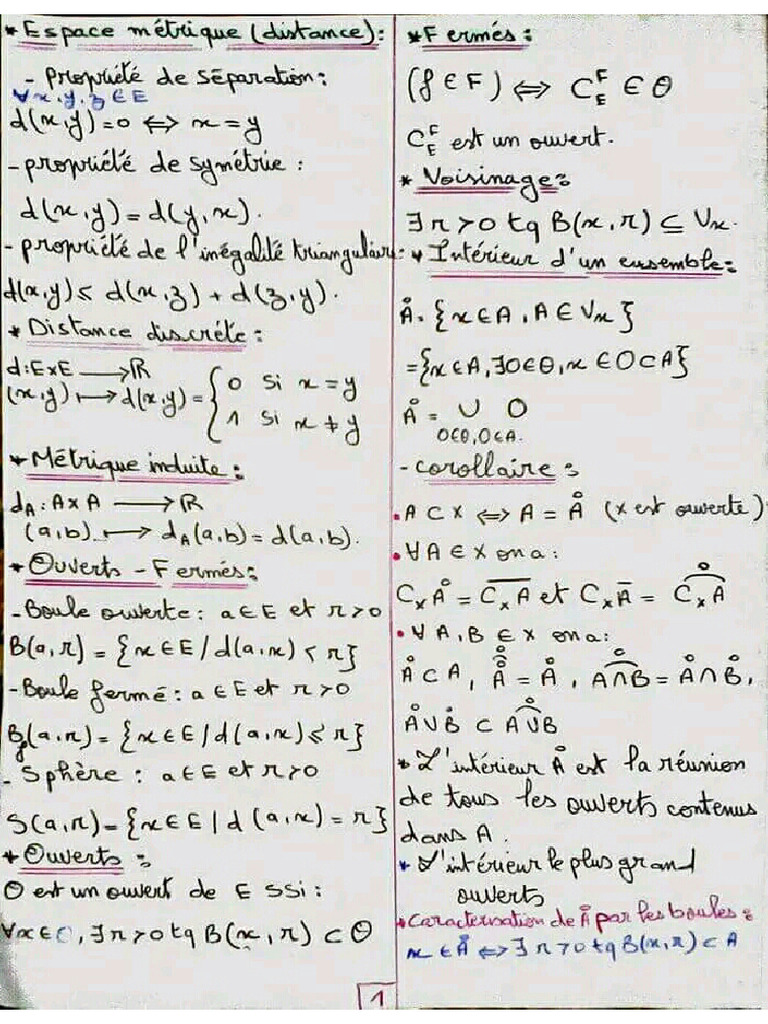 * Espace métrique (distance):
- Propriété de séparation:
∀x,y,z ∈ E
d(x,y)=0 ⇔ x=y
- propriété de symétrie :
d(x,y) = d(y,x).
- propriété de l'inégalité triangulaire:
d(x,y) ≤ d(x,z) + d(z,y).
* Distance discrète :
d: E×E ⟶ ℝ
(x,y) ⟼ d(x,y) = { 0 si x=y
1 si x≠y
* Métrique induite :
d_A : A×A ⟶ ℝ
(a,b) ⟼ d_A(a,b) = d(a,b).
* Ouverts - Fermés:
- Boule ouverte: a∈E et r>0
B(a,r) = {x∈E / d(a,x) < r}
- Boule fermé: a∈E et r>0
B_f(a,r) = {x∈E / d(a,x) ≤ r}
- Sphère : a∈E et r>0
S(a,r) = {x∈E / d(a,x) = r}
* Ouverts :
O est un ouvert de E SSi :
∀x∈O, ∃r>0 tq B(x,r) ⊂ Θ
* Fermés :
(f ∈ F) ⇔ C_E^F ∈ Θ
C_E^F est un ouvert.
* Voisinage:
∃r>0 tq B(x,r) ⊆ Vx.
* Intérieur d'un ensemble:
Å = {x∈A, A∈Vx}
= {x∈A, ∃O∈Θ, x∈O⊂A}
Å = ∪ O
O∈Θ, O⊂A.
- corollaire :
• A ⊂ X ⇔ A = Å (X est ouverte)
• ∀A ∈ X on a :
C_X Å = \overline{C_X A} et C_X Ā = \overset{o}{\overparen{C_X A}}
• ∀ A, B ∈ X on a:
Å ⊂ A, \overset{o}{Å} = Å, \overset{o}{\overparen{A∩B}} = Å ∩ B̊,
Å ∪ B̊ ⊂ \overset{o}{\overparen{A∪B}}
* L'intérieur Å est la réunion
de tous les ouverts contenus
dans A.
* L'intérieur le plus grand
ouverts
* Caracterisation de Å par les boules :
x ∈ Å ⇔ ∃r>0 tq B(x,r) ⊂ A
1